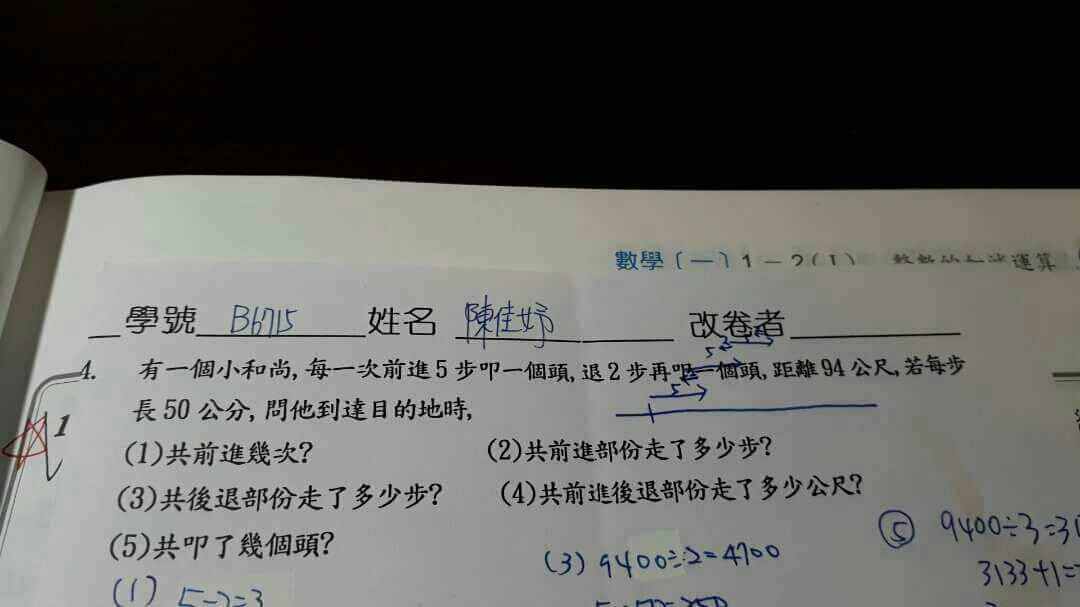 數學〔一〕1－2(1) 整數的加減運算
學號 B6715 姓名 陳佳妤 改卷者
4. 有一個小和尚,每一次前進5步叩一個頭,退2步再叩一個頭,距離94公尺,若每步
長50公分,問他到達目的地時,
1
(1)共前進幾次?
(2)共前進部份走了多少步?
(3)共後退部份走了多少步?
(4)共前進後退部份走了多少公尺?
(5)共叩了幾個頭?
(1) 5-2=3
(3) 9400÷2=4700
⑤ 9400÷3=31
3133+1=